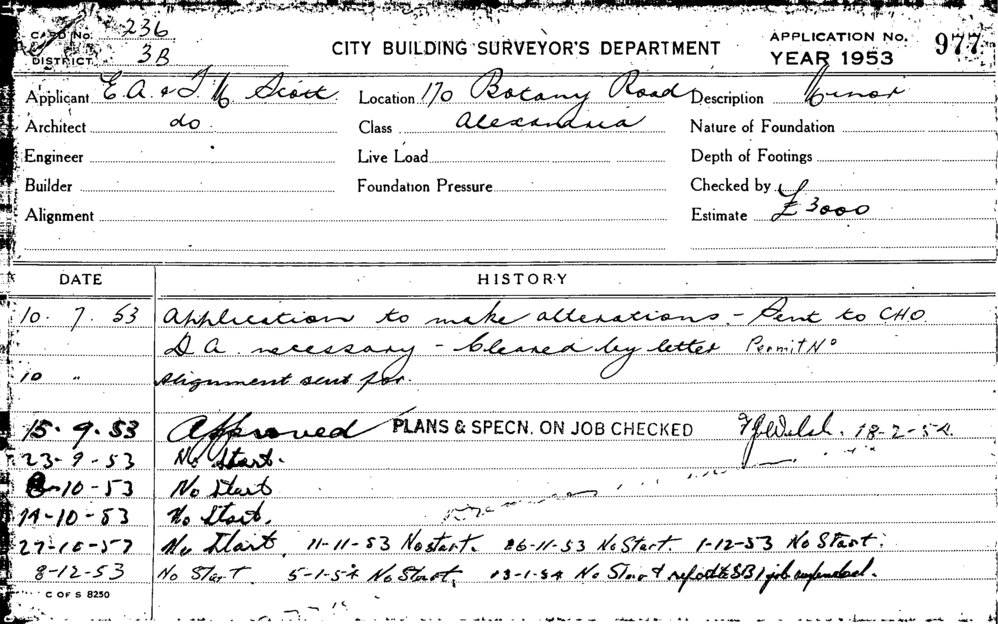 CARD No. 236
DISTRICT 3B
CITY BUILDING SURVEYOR'S DEPARTMENT
APPLICATION No. 977
YEAR 1953
Applicant E.A. & J. M Scott Location 170 Botany Road Description Minor
Architect do Class Alexandria Nature of Foundation
Engineer Live Load Depth of Footings
Builder Foundation Pressure Checked by
Alignment Estimate £3000
DATE HISTORY
10. 7. 53 Application to make alterations - Sent to CHO.
D A. necessary - Cleared by letter Permit No
10 " Alignment sent for.
15. 9. 53 Approved PLANS & SPECN. ON JOB CHECKED Welsh. 18-2-54.
23-9-53 No Start.
8-10-53 No Start
14-10-53 No Start.
27-10-53 No Start. 11-11-53 No start. 26-11-53 No Start. 1-12-53 No Start.
8-12-53 No Start. 5-1-54 No Start. 13-1-54 No Start job suspended.
C OF S 8250